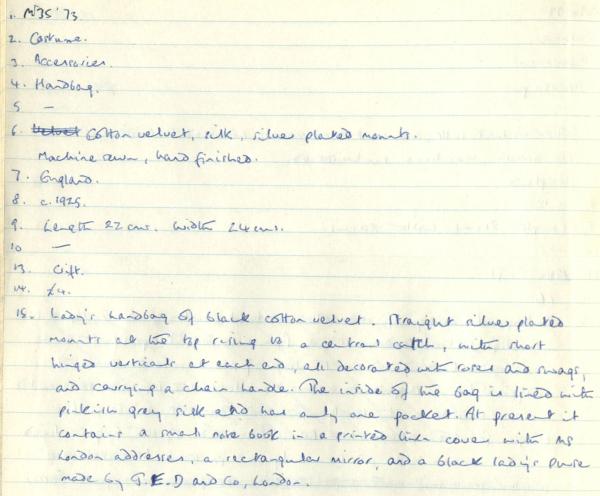 1. M35'73
2. Costume.
3. Accessories.
4. Handbag.
5 —
6. Velvet Cotton velvet, silk, silver plated mounts.
Machine sewn, hand finished.
7. England.
8. c.1925.
9. Length 22 cms. Width 24 cms.
10 —
13. Gift.
14. £4.
15. Lady's handbag of black cotton velvet. Straight silver plated
mounts at the top rising to a central catch, with short
hinged verticals at each end, all decorated with roses and swags,
and carrying a chain handle. The inside of the bag is lined with
pinkish grey silk and has only one pocket. At present it
contains a small note book in a printed linen cover with MS
London addresses, a rectangular mirror, and a black lady's purse
made by T.E.D and Co, London.